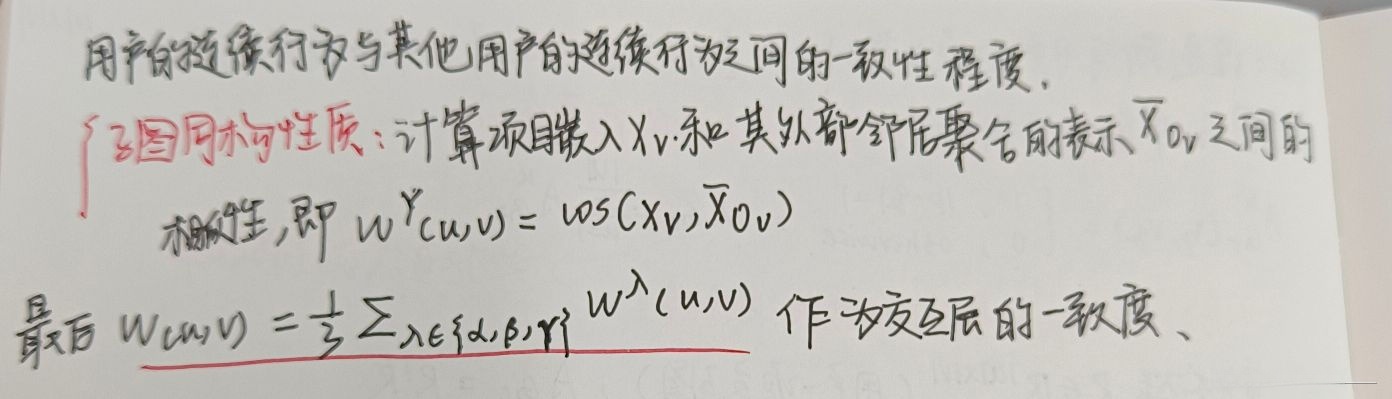 用户的连续行为与其他用户的连续行为之间的一致性程度.
子图同构性质:计算项目嵌入 Xᵥ 和其外部邻居聚合的表示 X̄_Oᵥ 之间的
相似性,即 W^γ(u,v) = cos(Xᵥ, X̄_Oᵥ)
最后 W(u,v) = 1/3 ∑_λ∈{α,β,γ} W^λ(u,v) 作为交互层的一致度、